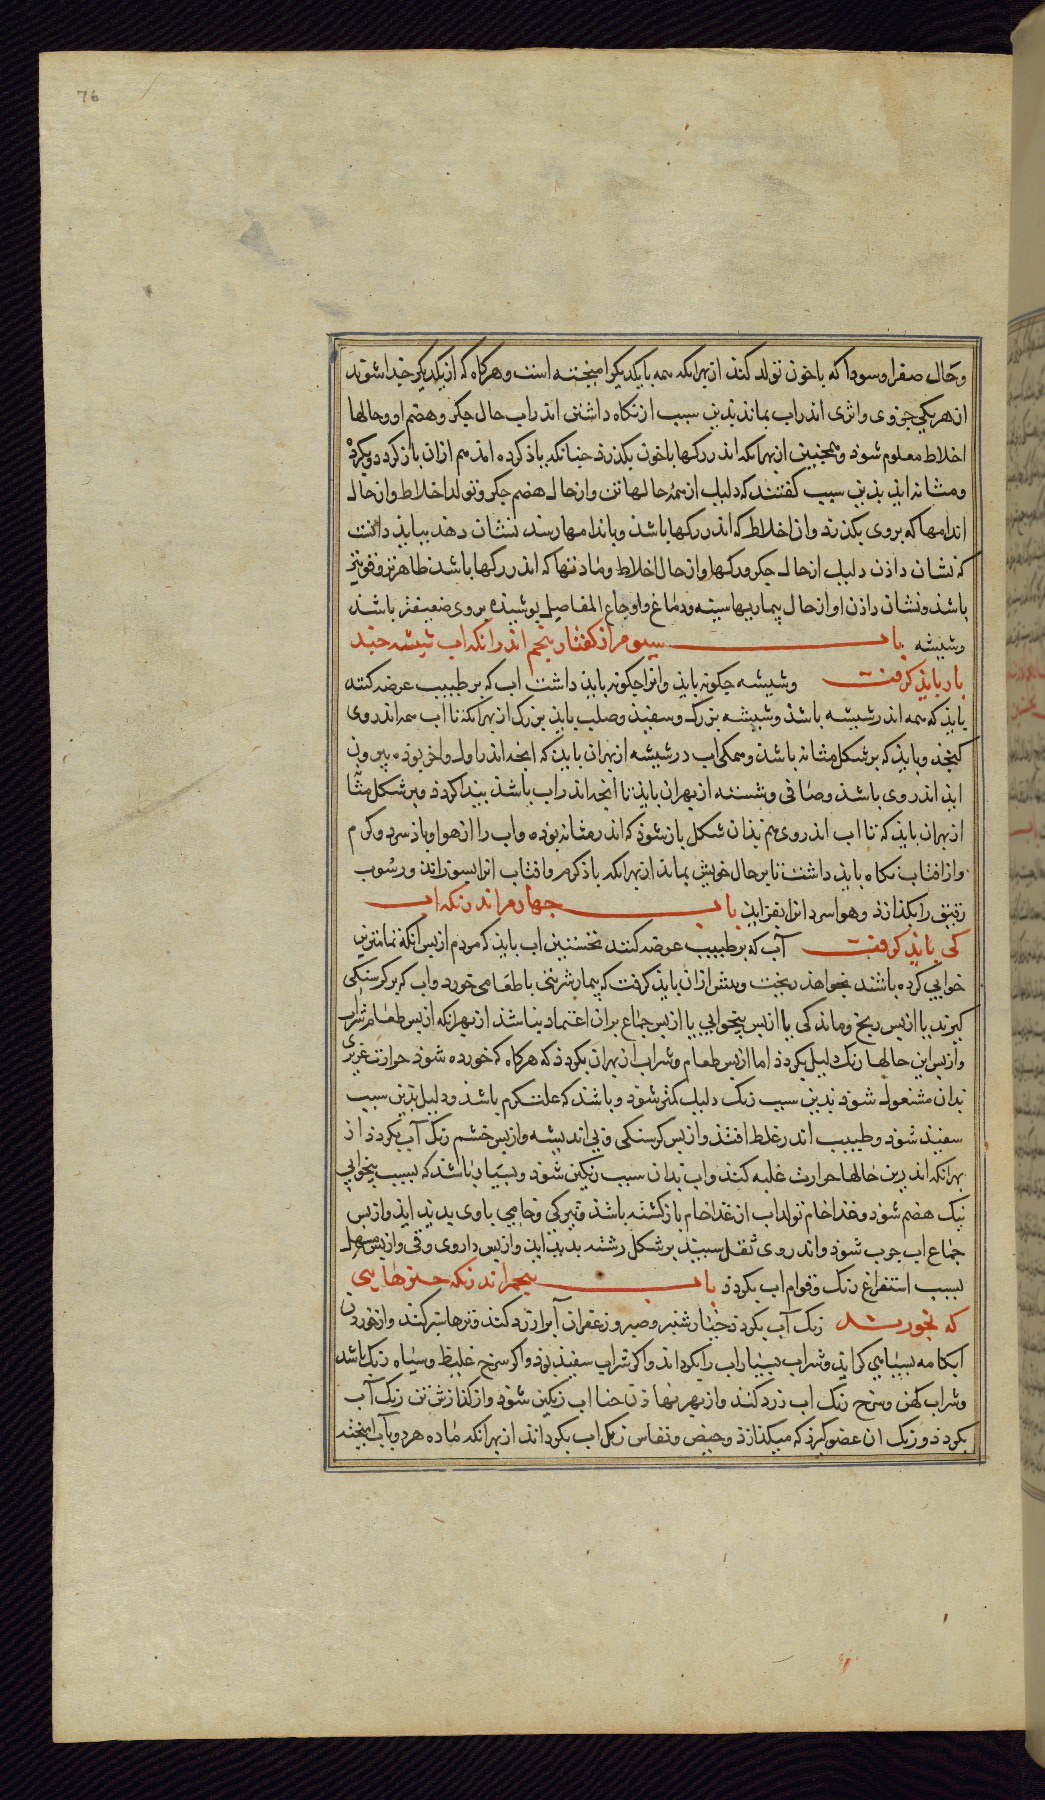 76
وحال صفرا وسودا که باخون تولد کند از بهر انکه همه بایکدیکر امیخته است وهرکاه که از یکدیکر جدا شوند
از هر یکی جزوی واثری اندر اب بماند بدین سبب از نکاه داشتن اندر اب حال جکر وهضم او وحالها
اخلاط معلوم شوذ وهمچنین از بهر انکه اندر رکها باخون بکذرد جنانکه یاذ کرده امد هم از ان باز کردد وبکرده
ومثانه ایذ بذین سبب کفتند که دلیل از همه حالها تن واز حال هضم جکر وتولد اخلاط واز حال
اندامها که بروی بکذرد وان اخلاط که اندر رکها باشذ وباندامها رسد نشان دهد ببایذ دانست
که نشان داذن دلیل از حال جکر ورکها واز حال اخلاط ومادتها که اندر رکها باشد ظاهرتر وقوی‌تر
باشذ ونشان داذن او از حال بیماریها سینه ودماغ واوجاع المفاصل بوشیذه بروی ضعیفتر باشذ
وشیشه باب سیوم از کفتار پنجم اندر انکه اب شیشه جند
بار بایذ کرفت وشیشه جکونه بایذ وانرا جکونه بایذ داشت اب که بر طبیب عرضه کنند
بایذ که همه اندر شیشه باشذ وشیشه بزرک وسفیذ وصلب بایذ بزرک از بهر انکه تا اب همه اندر وی
کنجذ وبایذ که بر شکل مثانه باشذ وهمکی اب در شیشه از بهر ان بایذ که انجه اندر اول واخر بوذه بیرون
ایذ اندر وی باشذ وصافی وشسته از بهر ان بایذ تا انجه اندر اب باشذ بیذا کردذ وبر شکل مثانه
از بهر ان بایذ که تا اب اندر وی هم بذان شکل باز شوذ که اندر مثانه بوذه واب را از هوا وباذ سرد وکرم
واز افتاب نکاه بایذ داشت تا بر حال خویش بماند از بهر انکه باذ کرم وافتاب انرا بسوزاند ورسوب
رقیق را بکذازد وهوا سرد انرا بفزاید باب چهارم اندر انکه اب
کی بایذ کرفت آب که بر طبیب عرضه کنند نخستین اب بایذ که مردم از پس انکه تمامترین
خوابی کرده باشند بخواهذ ریخت وپیش از ان بایذ کرفت که بیمار شربتی یا طعامی خورد واب که بر کرسنکی
کیرند یا از پس رنج وماندکی یا از پس بیخوابی یا از پس جماع بر ان اعتماد نباشذ از بهر انکه از پس طعام وشراب
واز پس این حالها رنک دلیل بکردذ اما از پس طعام وشراب از بهر ان بکردذ که هرکاه که خورده شوذ حرارت غریزی
بدان مشغول شوذ بدین سبب رنک دلیل کمتر شوذ وباشذ که علت کرم باشذ ودلیل بذین سبب
سفیذ شوذ وطبیب اندر غلط افتذ واز پس کرسنکی وبی اندیشه واز پس خشم رنک آب بکردذ از
بهر انکه اندرین حالها حرارت غلبه کند واب بدان سبب رنکین شوذ وبسیار باشذ که بسبب بیخوابی
نیک هضم شوذ وغذا خام تولد اب از غذا خام بازکشته باشذ وتیرکی وخامی باوی بدید ایذ واز پس
جماع اب جرب شوذ واندر وی ثفل سبیذ بر شکل رشته بدید ایذ واز پس داروی وقی واز پس مسهل
بسبب استفراغ رنک وقوام اب بکردذ باب پنجم اندر انکه چیزهایی
که بخورند رنک آب بکردذ خیارشنبر وصبر وزعفران آبرا زرد کند وتزها سبز کند واز خوردن
آبکامه بسیاهی کراید وشراب بسیار اب را بکرداند واکر شراب سفیذ بوذ واکر سرخ غلیظ وسیاه رنک باشذ
وشراب کهن وسرخ رنک اب زرد کند واز بهر نهاذن حنا اب رنکین شوذ واز کذازش تن رنک آب
بکردذ ورنک ان عضو کیرذ که میکذازذ وحیض ونفاس رنک اب بکرداند از بهر انکه ماده هر دو بآب امیخته